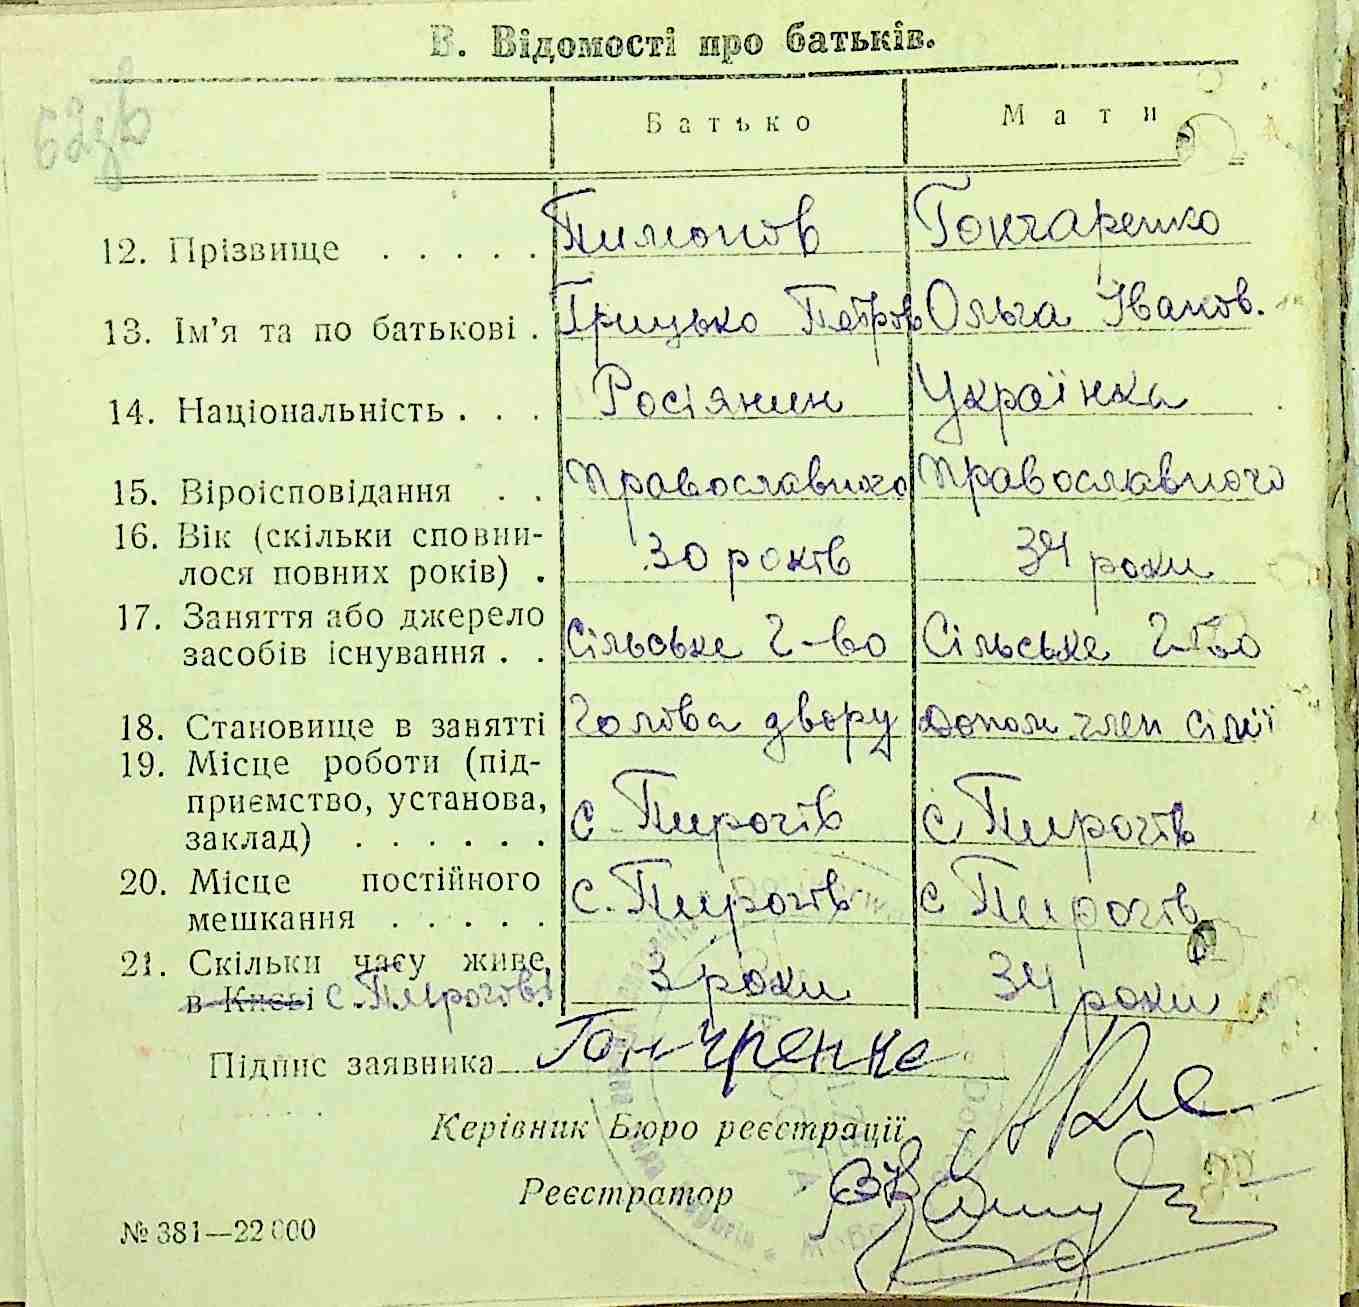 В. Відомості про батьків.
Батько Мати
12. Прізвище . . . . . Пимонов Гончаренко
13. Ім’я та по батькові . Грицько Петров Ольга Іванов.
14. Національність . . . Росіянин Українка
15. Віроісповідання . . Православного Православного
16. Вік (скільки сповни-
лося повних років) . 30 років 34 роки
17. Заняття або джерело
засобів існування . . Сільське г-во Сільське г-во
18. Становище в занятті Голова двору Допом. член сімї
19. Місце роботи (під-
приємство, установа,
заклад) . . . . . . с. Пирогів с. Пирогів
20. Місце постійного
мешкання . . . . . с. Пирогів с Пирогів
21. Скільки часу живе
в Києві с. Пирогові 3 роки 34 роки
Підпис заявника Гончренко
Керівник Бюро реєстрації
Реєстратор
№ 381—22000